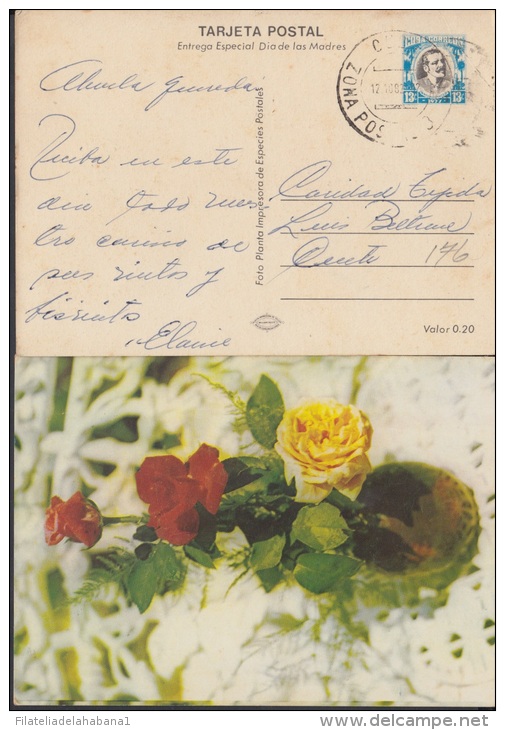 TARJETA POSTAL
Entrega Especial Dia de las Madres
CUBA CORREOS
13¢ 1977 13¢
ZONA POS
Abuela querida
Reciba en este
dia todo nues
tro cariño de
sus nietos y
bisnietos
Elaine
Foto Planta Impresora de Especies Postales
Caridad Tejeda
Luis Beltran
176
Valor 0.20
Filateliadelahabana1
www.delcampe.net